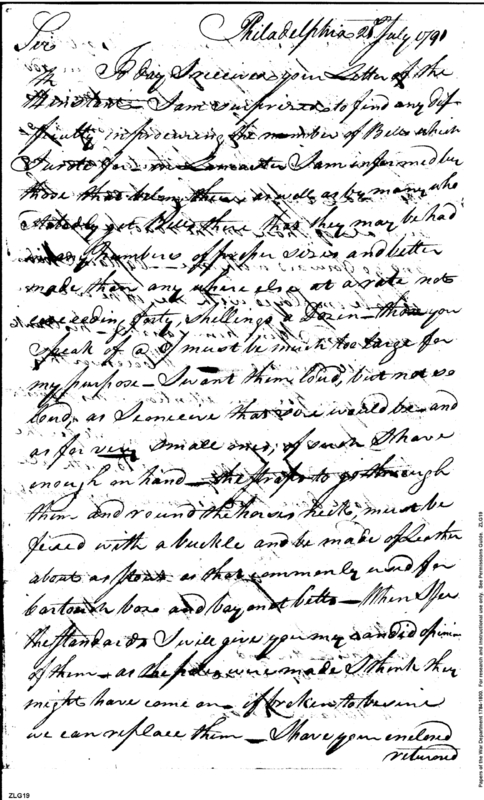 Philadelphia 28 July 1791
Sir
To day I received your Letter of the
I am surprized to find any dif
ficulty in procuring the number of Bells which
I wrote for in Lancaster I am informed by
those that belong there as well as by many who
get Bells there that they may be had
in any numbers of proper sizes and better
made than any where else at a rate not
exceeding forty shillings a dozen — those you
speak of a must be much too large for
my purpose — I want them loud, but not so
loud, as I conceive that size would be — and
as for very small ones, of such I have
enough on hand — the straps to go through
them and round the horses neck must be
fixed with a buckle and be made of leather
about as as that commonly used for
cartouch box and bayonet belts — When I see
the Standards I will give you my candid opinion
of them — as the were made I think they
might have come on — if broken to be sure
we can replace them — I have your enclosed
returned
Papers of the War Department 1784-1800. For research and instructional use only. See Permissions Guide. ZLG19
ZLG19